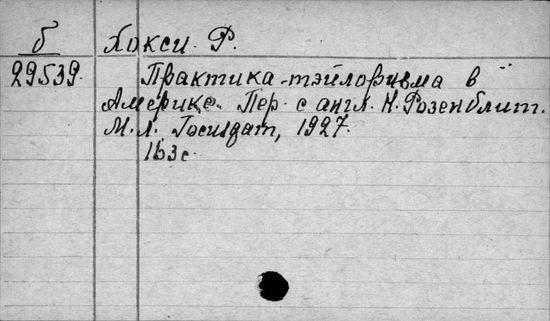 б Хокси Р.
29539. Практика тэйлоризма в
Америке. Пер. с англ. Н. Розенблит.
М. Л. Госиздат, 1927.
163 с.